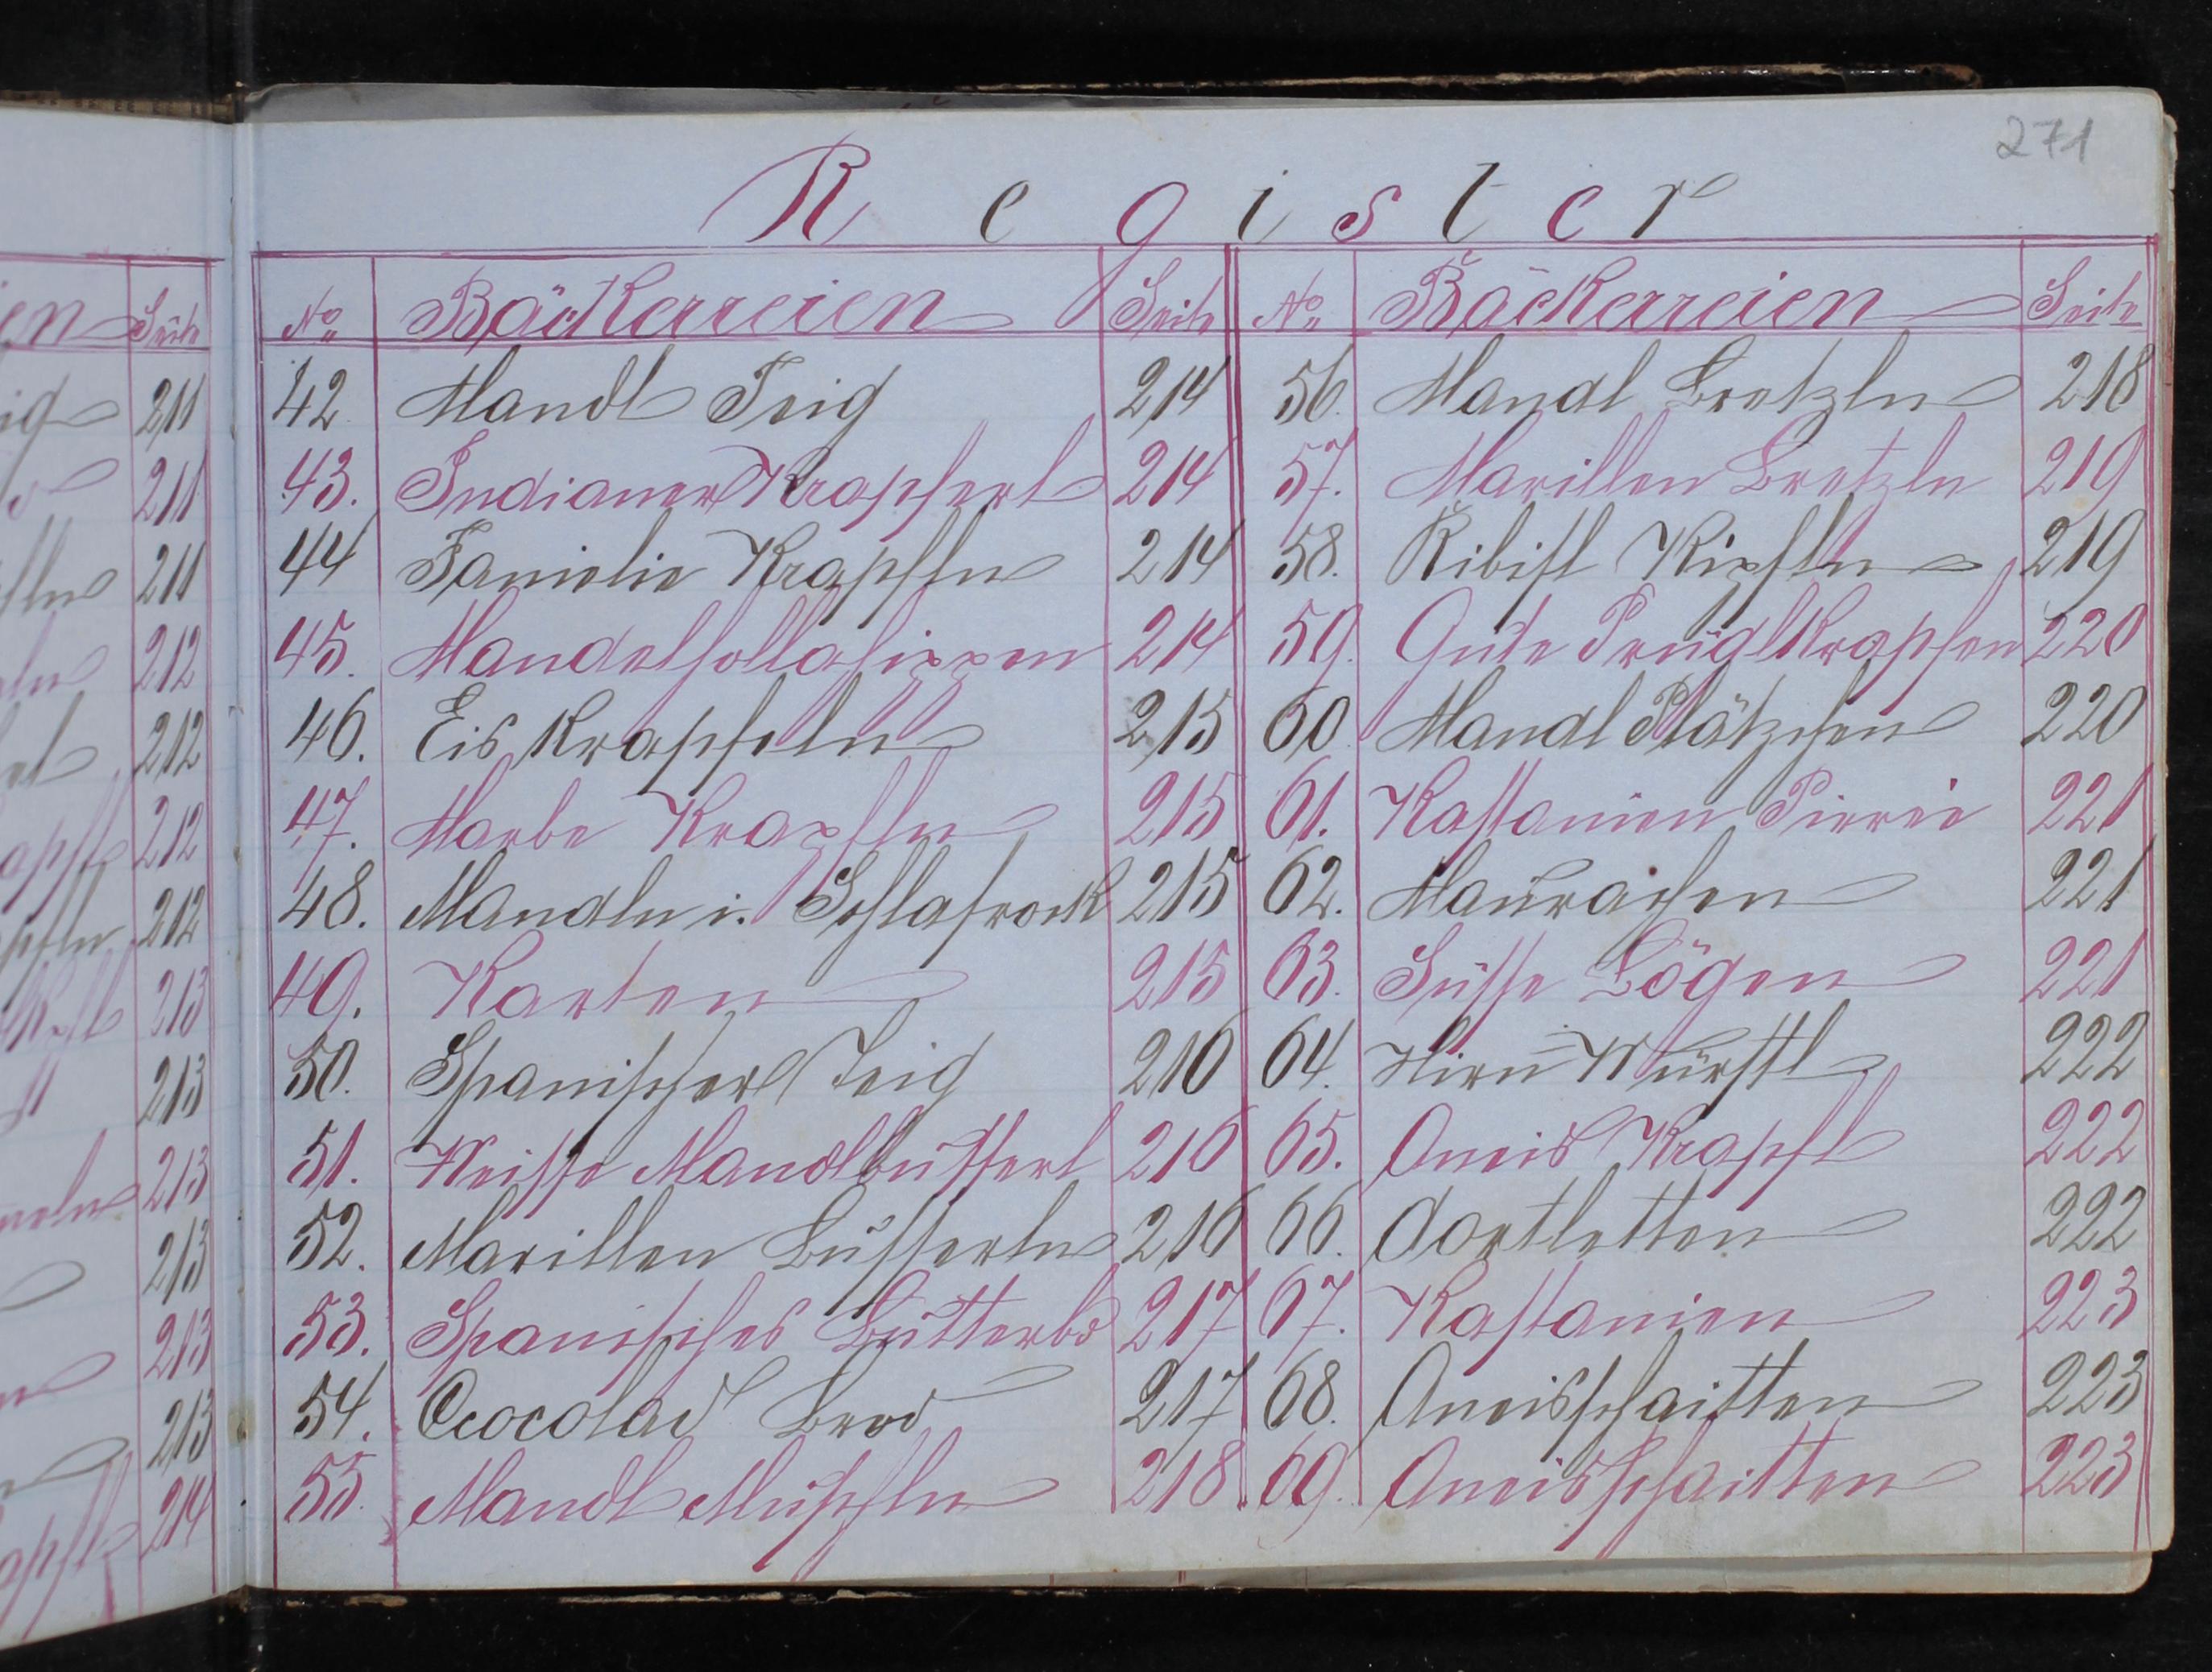 271
Register
No Bäckerreien Seite No Bäckerreien Seite
42. Mandl Teig 214 56. Mandl Bretzln 218
43. Indianer Krapferl 214 57. Marillen Bretzln 219
44 Famielie Krapfln 214 58. Ribisl Kipfln 219
45. Mandelhollahippen 214 59. Gute Prüglkrapfen 220
46. Eis Krapfeln 215 60. Mandl Plätzchen 220
47. Marbe Krapfln 215 61. Kastanien Pierrie 221
48. Mandln i. Schlafrock 215 62. Maurachen 221
49. Karten 215 63. Süsse Bögen 221
50. Spanischer Teig 216 64. Hirn Würstl 222
51. Weisse Mandlbusserl 216 65. Aneis Krapfl 222
52. Marillen Busserln 216 66. Dortletten 222
53. Spanisches Butterbd 217 67. Kastanien 223
54. Cocolad Brod 217 68. Aneisschaitten 223
55. Mandl Muschln 218 69. Aneisschaitten 223
en Seite
211
211
211
212
212
212
212
213
213
213
213
213
213
214